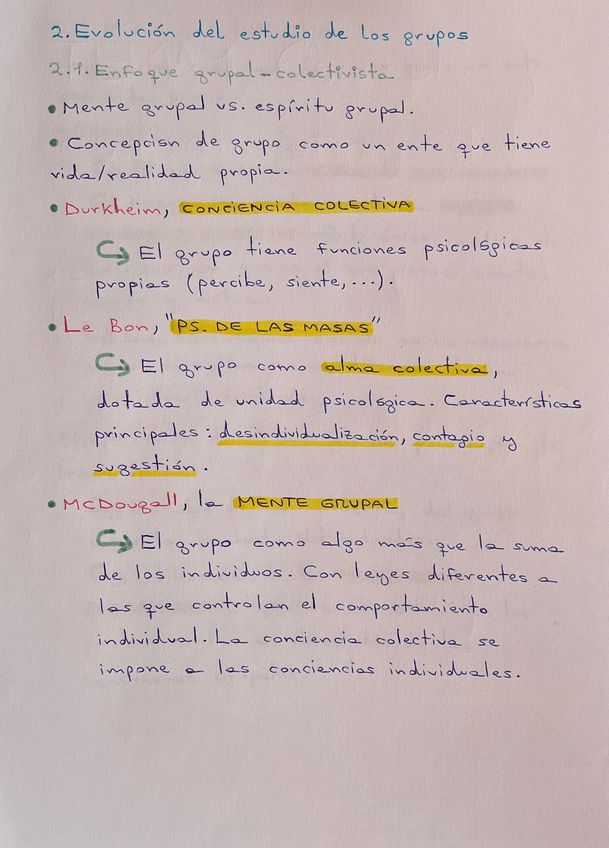 2. Evolución del estudio de los grupos
2.1. Enfoque grupal-colectivista
• Mente grupal vs. espíritu grupal.
• Concepción de grupo como un ente que tiene
vida/realidad propia.
• Durkheim, CONCIENCIA COLECTIVA
↪ El grupo tiene funciones psicológicas
propias (percibe, siente,...).
• Le Bon, "PS. DE LAS MASAS"
↪ El grupo como alma colectiva,
dotada de unidad psicológica. Características
principales: desindividualización, contagio y
sugestión.
• McDougall, la MENTE GRUPAL
↪ El grupo como algo más que la suma
de los individuos. Con leyes diferentes a
las que controlan el comportamiento
individual. La conciencia colectiva se
impone a las conciencias individuales.